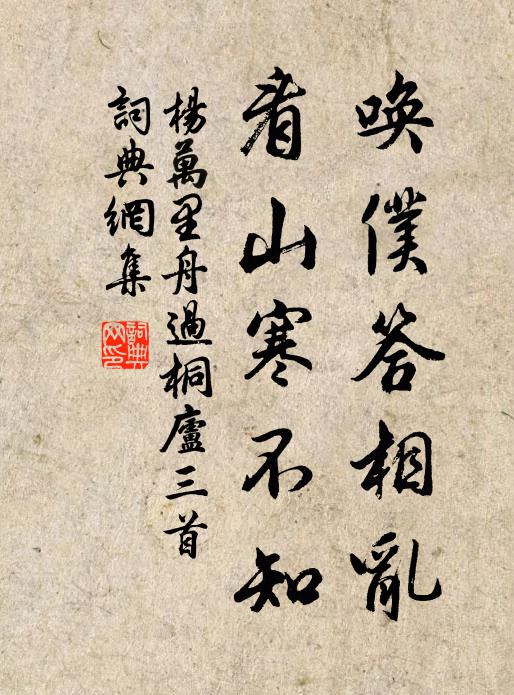 唤僕答相亂
看山寒不知
楊萬里舟過桐廬三首
詞典網集
詞典網印